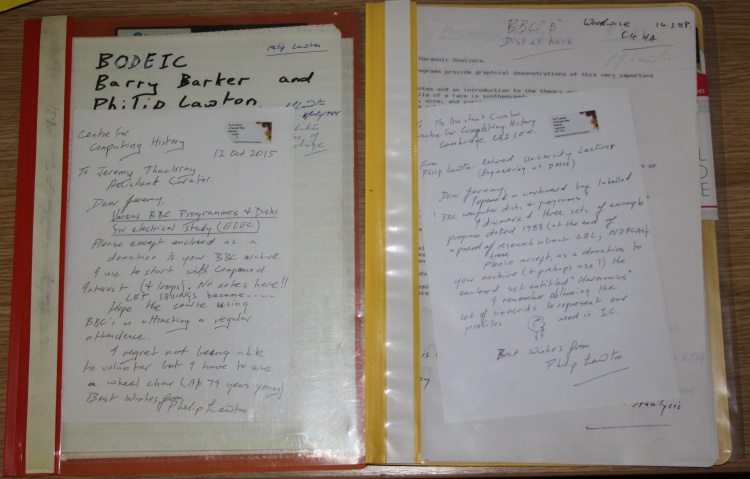 Philip Lawton
BODEIC
Barry Barker and
Philip Lawton.
Centre for
Computing History
12 Oct 2015
To Jeremy Thackray
Assistant Curator.
Dear Jeremy,
Various BBC Programmes & Disks
for electrical Study (ELEC)
Please except enclosed as a
donation to your BBC archive
I use to start with Compound
Interest (& loops). No notes here!!
LET SAVINGS become.....
Hope the course using
BBC's is attracting a regular
attendence.
I regret not being able
to volunter but I have to use
a wheel chair (At 79 years young)
Best Wishes from
Philip Lawton
BBC B
Wordwise
14.2.88.
Disk at back
P J Lawton
Harmonic Analysis.
provide graphical demonstrations of this very important
notes and an introduction to the theory
of a face is synthesised
To The Assistant Curator
Centre for Computing History
Cambridge CB1 3EW.
From
Philip Lawton Retired University Lecturer
(Engineering at DMU)
Dear Jeremy,
I opened a cardboard box labelled
"BBC computer disks & programs".
I discovered three sets of example
programs dated 1988 (at the end of
a period of research about CAL, NDPCAL)
Please accept, as a donation to
your archive (& perhaps use?) the
enclosed set entitled "Harmonics"
I remember obtaining the
set of sinusoids to represent our
profiles
used in IC.
Best Wishes from
Philip Lawton
analysis